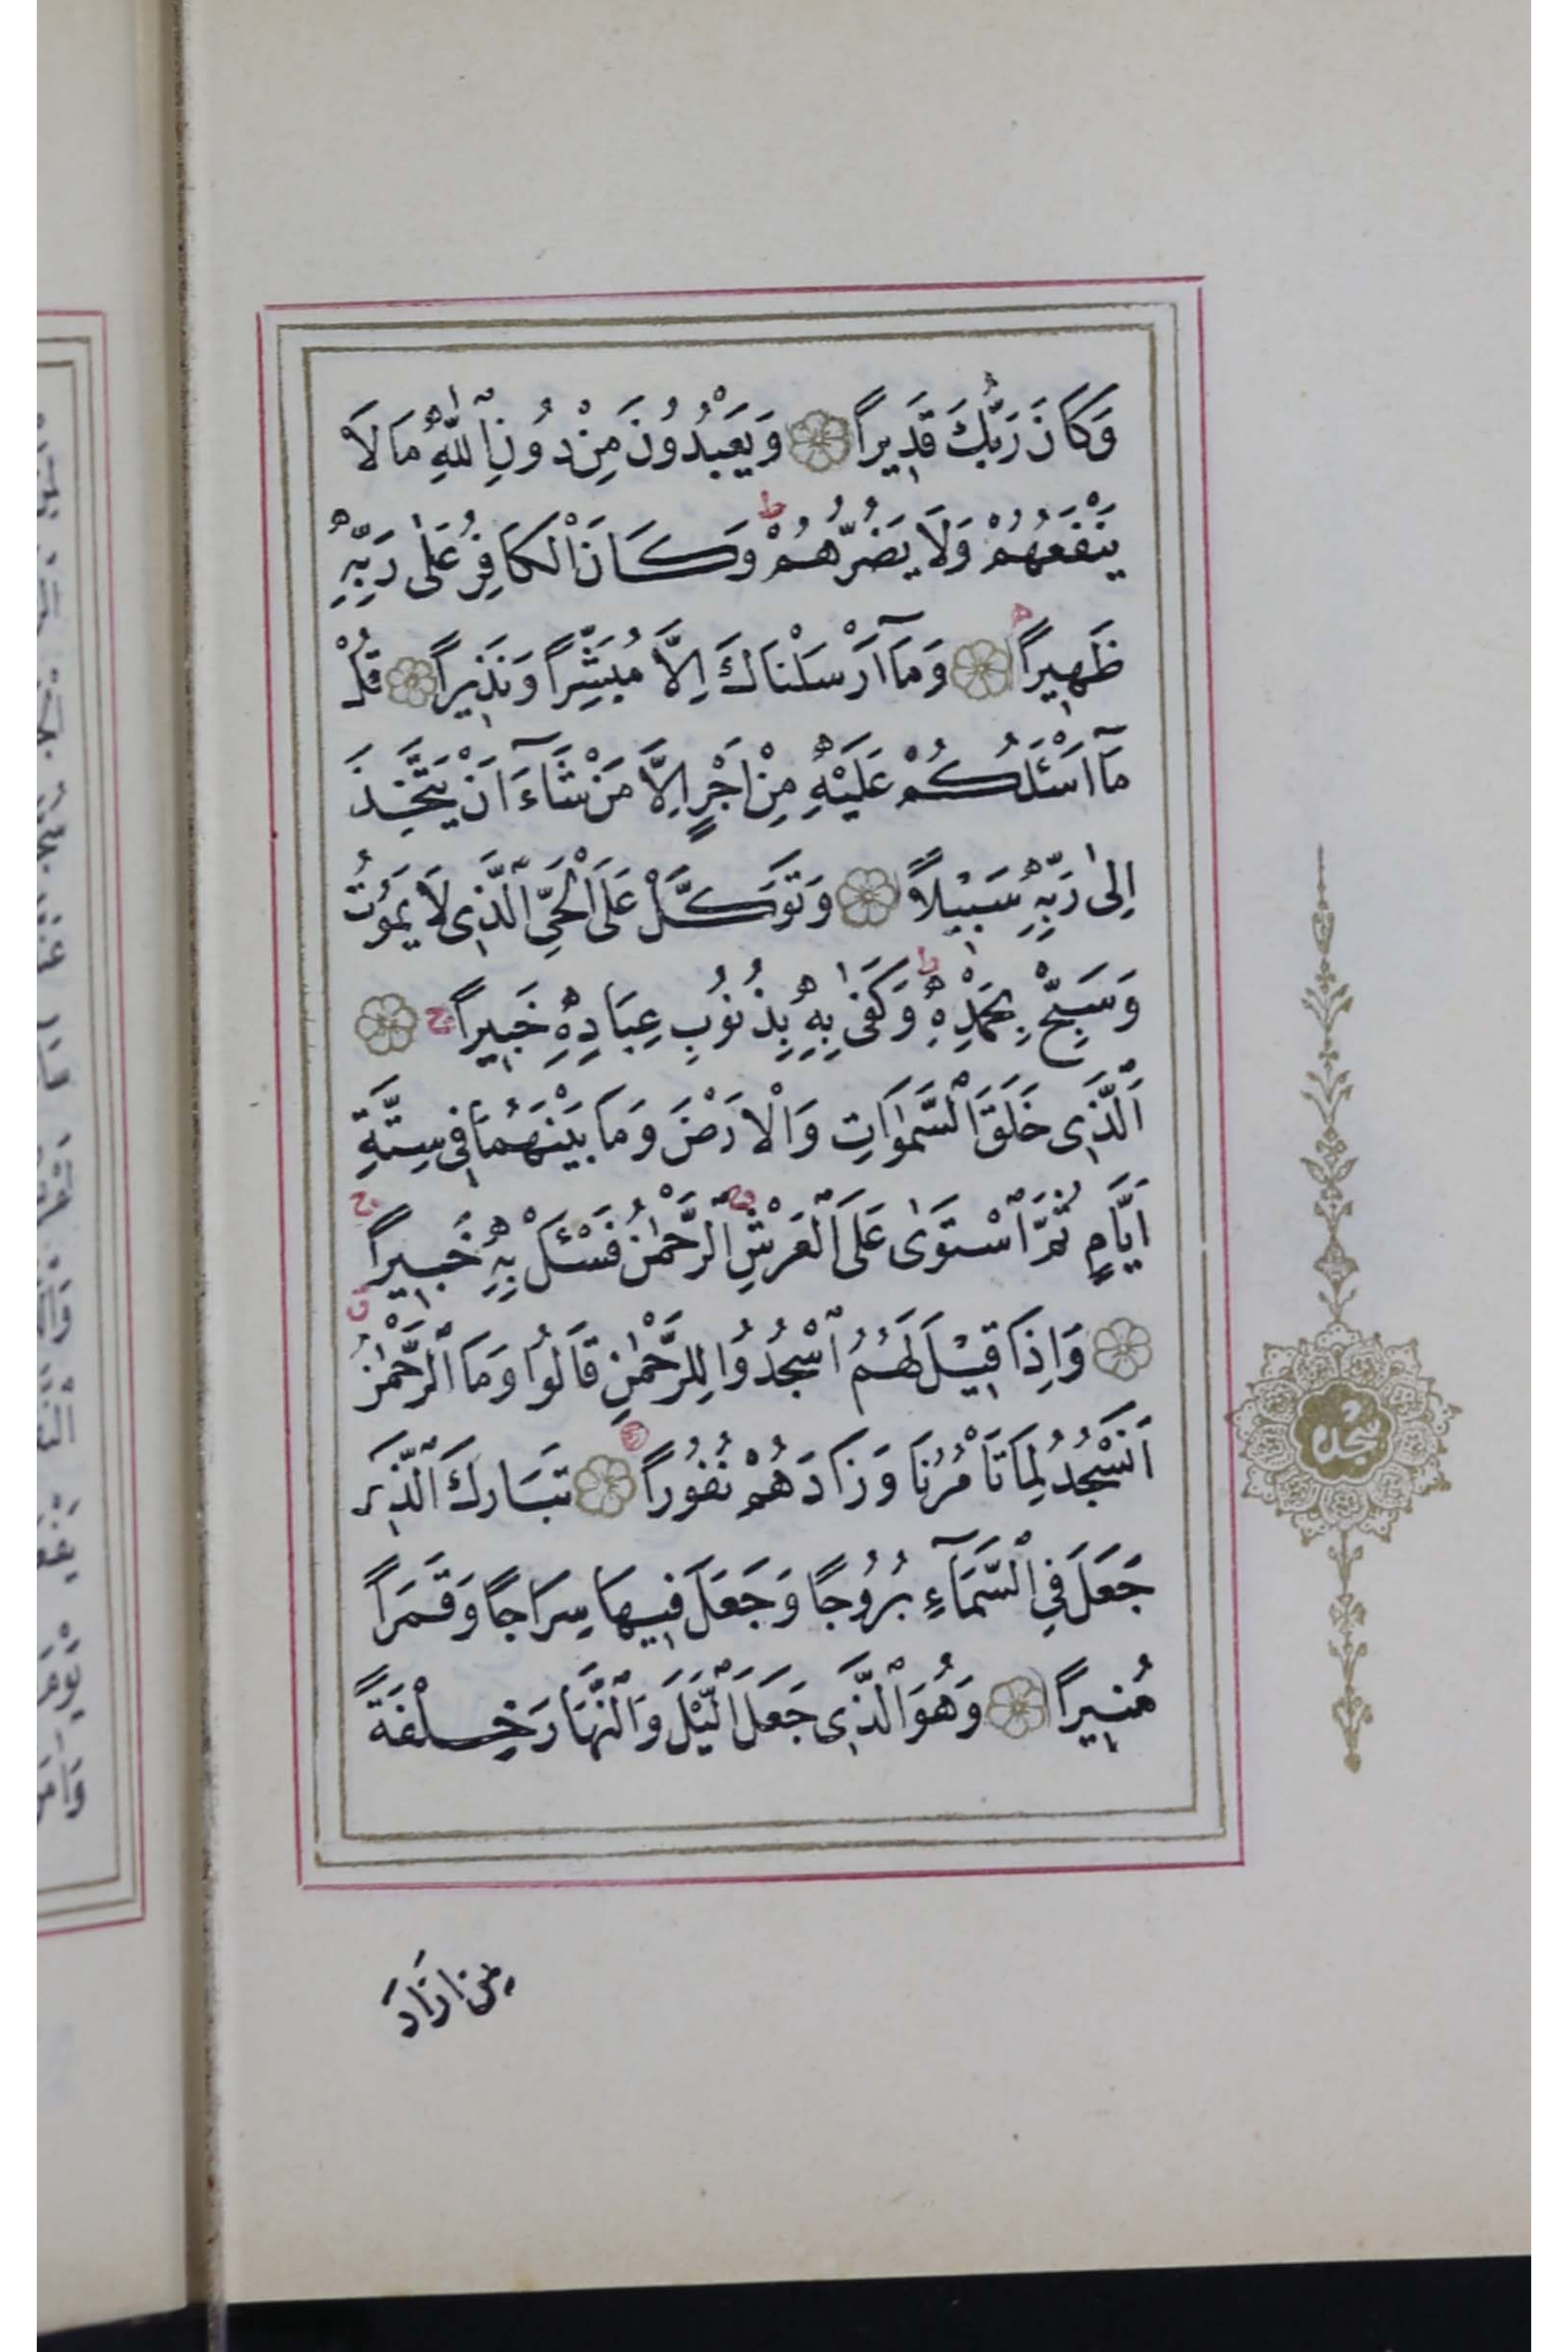 وَكَانَ رَبُّكَ قَدِيراً وَيَعْبُدُونَ مِنْ دُونِ ٱللّٰهِ مَا لَا
يَنْفَعُهُمْ وَلَا يَضُرُّهُمْ ط وَكَانَ ٱلْكَافِرُ عَلٰى رَبِّهِ
ظَهِيراً وَمَآ اَرْسَلْنَاكَ اِلَّا مُبَشِّراً وَنَذِيراً قُلْ
مَآ اَسْـَٔلُكُمْ عَلَيْهِ مِنْ اَجْرٍ اِلَّا مَنْ شَآءَ اَنْ يَتَّخِذَ
اِلٰى رَبِّهِ سَبِيلاً وَتَوَكَّلْ عَلَى ٱلْحَىِّ ٱلَّذِى لَا يَمُوتُ
وَسَبِّحْ بِحَمْدِهِ ط وَكَفٰى بِهِ بِذُنُوبِ عِبَادِهِ خَبِيراً
اَلَّذِى خَلَقَ ٱلسَّمٰوَاتِ وَالْاَرْضَ وَمَا بَيْنَهُمَا فِى سِتَّةِ
اَيَّامٍ ثُمَّ ٱسْتَوٰى عَلَى ٱلْعَرْشِ ٱلرَّحْمٰنُ فَسْـَٔلْ بِهِ خَبِيراً
وَاِذَا قِيلَ لَهُمُ ٱسْجُدُوا لِلرَّحْمٰنِ قَالُوا وَمَا ٱلرَّحْمٰنُ
اَنَسْجُدُ لِمَا تَأْمُرُنَا وَزَادَهُمْ نُفُوراً تَبَارَكَ ٱلَّذِى
جَعَلَ فِى ٱلسَّمَآءِ بُرُوجًا وَجَعَلَ فِيهَا سِرَاجًا وَقَمَراً
مُنِيراً وَهُوَ ٱلَّذِى جَعَلَ ٱلَّيْلَ وَٱلنَّهَارَ خِلْفَةً
سجده
لمن اراد